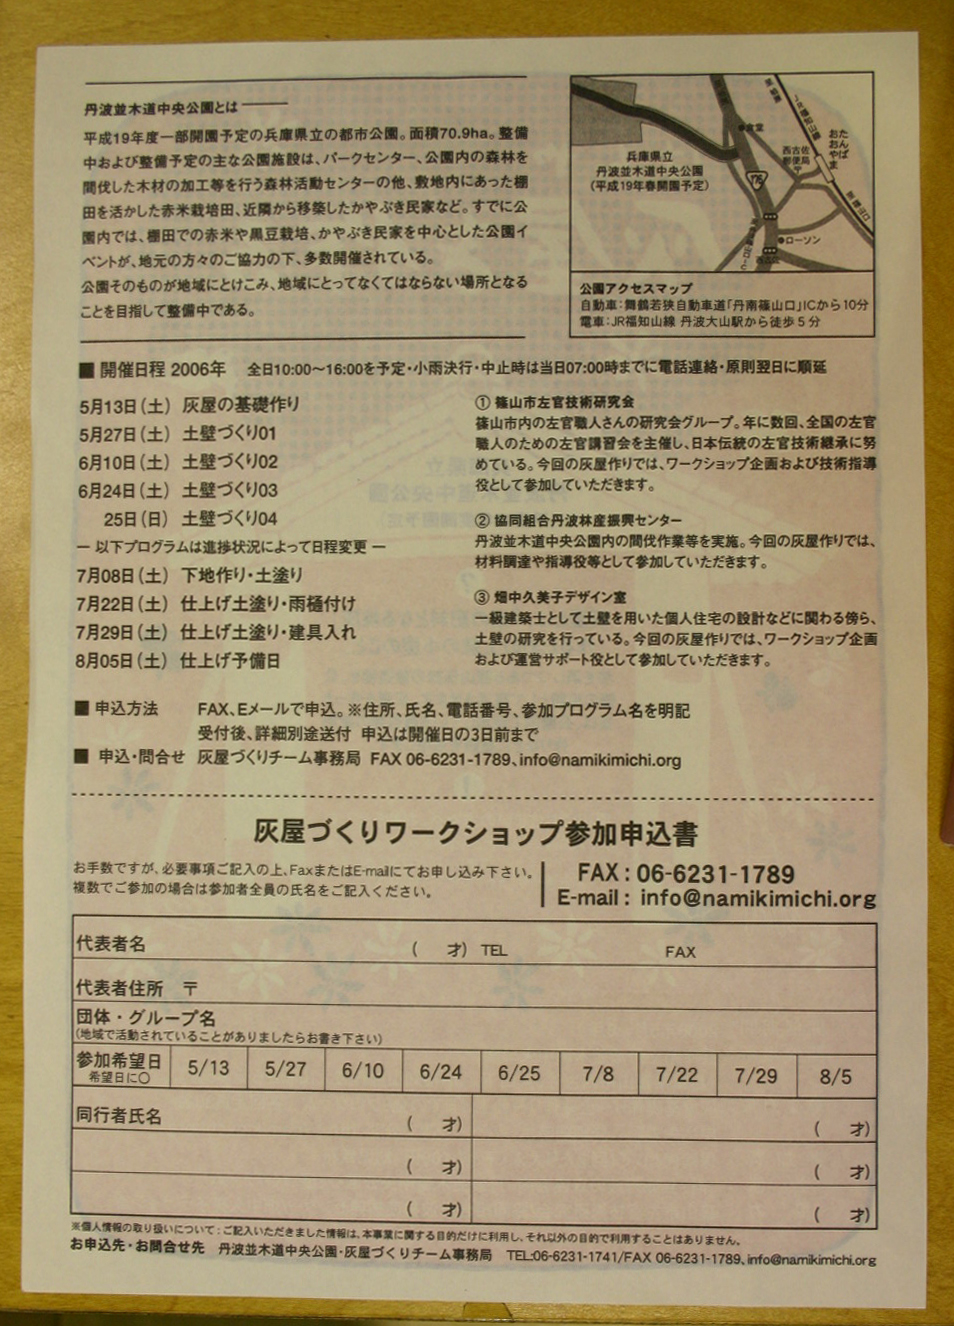 丹波並木道中央公園とは
平成19年度一部開園予定の兵庫県立の都市公園。面積70.9ha。整備
中および整備予定の主な公園施設は、パークセンター、公園内の森林を
間伐した木材の加工等を行う森林活動センターの他、敷地内にあった棚
田を活かした赤米栽培田、近隣から移築したかやぶき民家など。すでに公
園内では、棚田での赤米や黒豆栽培、かやぶき民家を中心とした公園イ
ベントが、地元の方々のご協力の下、多数開催されている。
公園そのものが地域にとけこみ、地域にとってなくてはならない場所となる
ことを目指して整備中である。
兵庫県立
丹波並木道中央公園
(平成19年春開園予定)
176
西古佐
郵便局
たんば
おおやま
ローソン
公園アクセスマップ
自動車:舞鶴若狭自動車道「丹南篠山口」ICから10分
電車:JR福知山線 丹波大山駅から徒歩5分
■ 開催日程 2006年 全日10:00〜16:00を予定・小雨決行・中止時は当日07:00時までに電話連絡・原則翌日に順延
5月13日(土) 灰屋の基礎作り
5月27日(土) 土壁づくり01
6月10日(土) 土壁づくり02
6月24日(土) 土壁づくり03
25日(日) 土壁づくり04
ー 以下プログラムは進捗状況によって日程変更 ー
7月08日(土) 下地作り・土塗り
7月22日(土) 仕上げ土塗り・雨樋付け
7月29日(土) 仕上げ土塗り・建具入れ
8月05日(土) 仕上げ予備日
① 篠山市左官技術研究会
篠山市内の左官職人さんの研究会グループ。年に数回、全国の左官
職人のための左官講習会を主催し、日本伝統の左官技術継承に努
めている。今回の灰屋作りでは、ワークショップ企画および技術指導
役として参加していただきます。
② 協同組合丹波林産振興センター
丹波並木道中央公園内の間伐作業等を実施。今回の灰屋作りでは、
材料調達や指導役等として参加していただきます。
③ 畑中久美子デザイン室
一級建築士として土壁を用いた個人住宅の設計などに関わる傍ら、
土壁の研究を行っている。今回の灰屋作りでは、ワークショップ企画
および運営サポート役として参加していただきます。
■ 申込方法 FAX、Eメールで申込。※住所、氏名、電話番号、参加プログラム名を明記
受付後、詳細別途送付 申込は開催日の3日前まで
■ 申込・問合せ 灰屋づくりチーム事務局 FAX 06-6231-1789、info@namikimichi.org
灰屋づくりワークショップ参加申込書
お手数ですが、必要事項ご記入の上、FaxまたはE-mailにてお申し込み下さい。
複数でご参加の場合は参加者全員の氏名をご記入ください。
FAX : 06-6231-1789
E-mail : info@namikimichi.org
代表者名 ( 才) TEL FAX
代表者住所 〒
団体・グループ名
(地域で活動されていることがありましたらお書き下さい)
参加希望日 5/13 5/27 6/10 6/24 6/25 7/8 7/22 7/29 8/5
希望日に〇
同行者氏名 ( 才) ( 才)
( 才) ( 才)
( 才) ( 才)
※個人情報の取り扱いについて:ご記入いただきました情報は、本事業に関する目的だけに利用し、それ以外の目的で利用することはありません。
お申込先・お問合せ先 丹波並木道中央公園・灰屋づくりチーム事務局 TEL:06-6231-1741/FAX 06-6231-1789、info@namikimichi.org